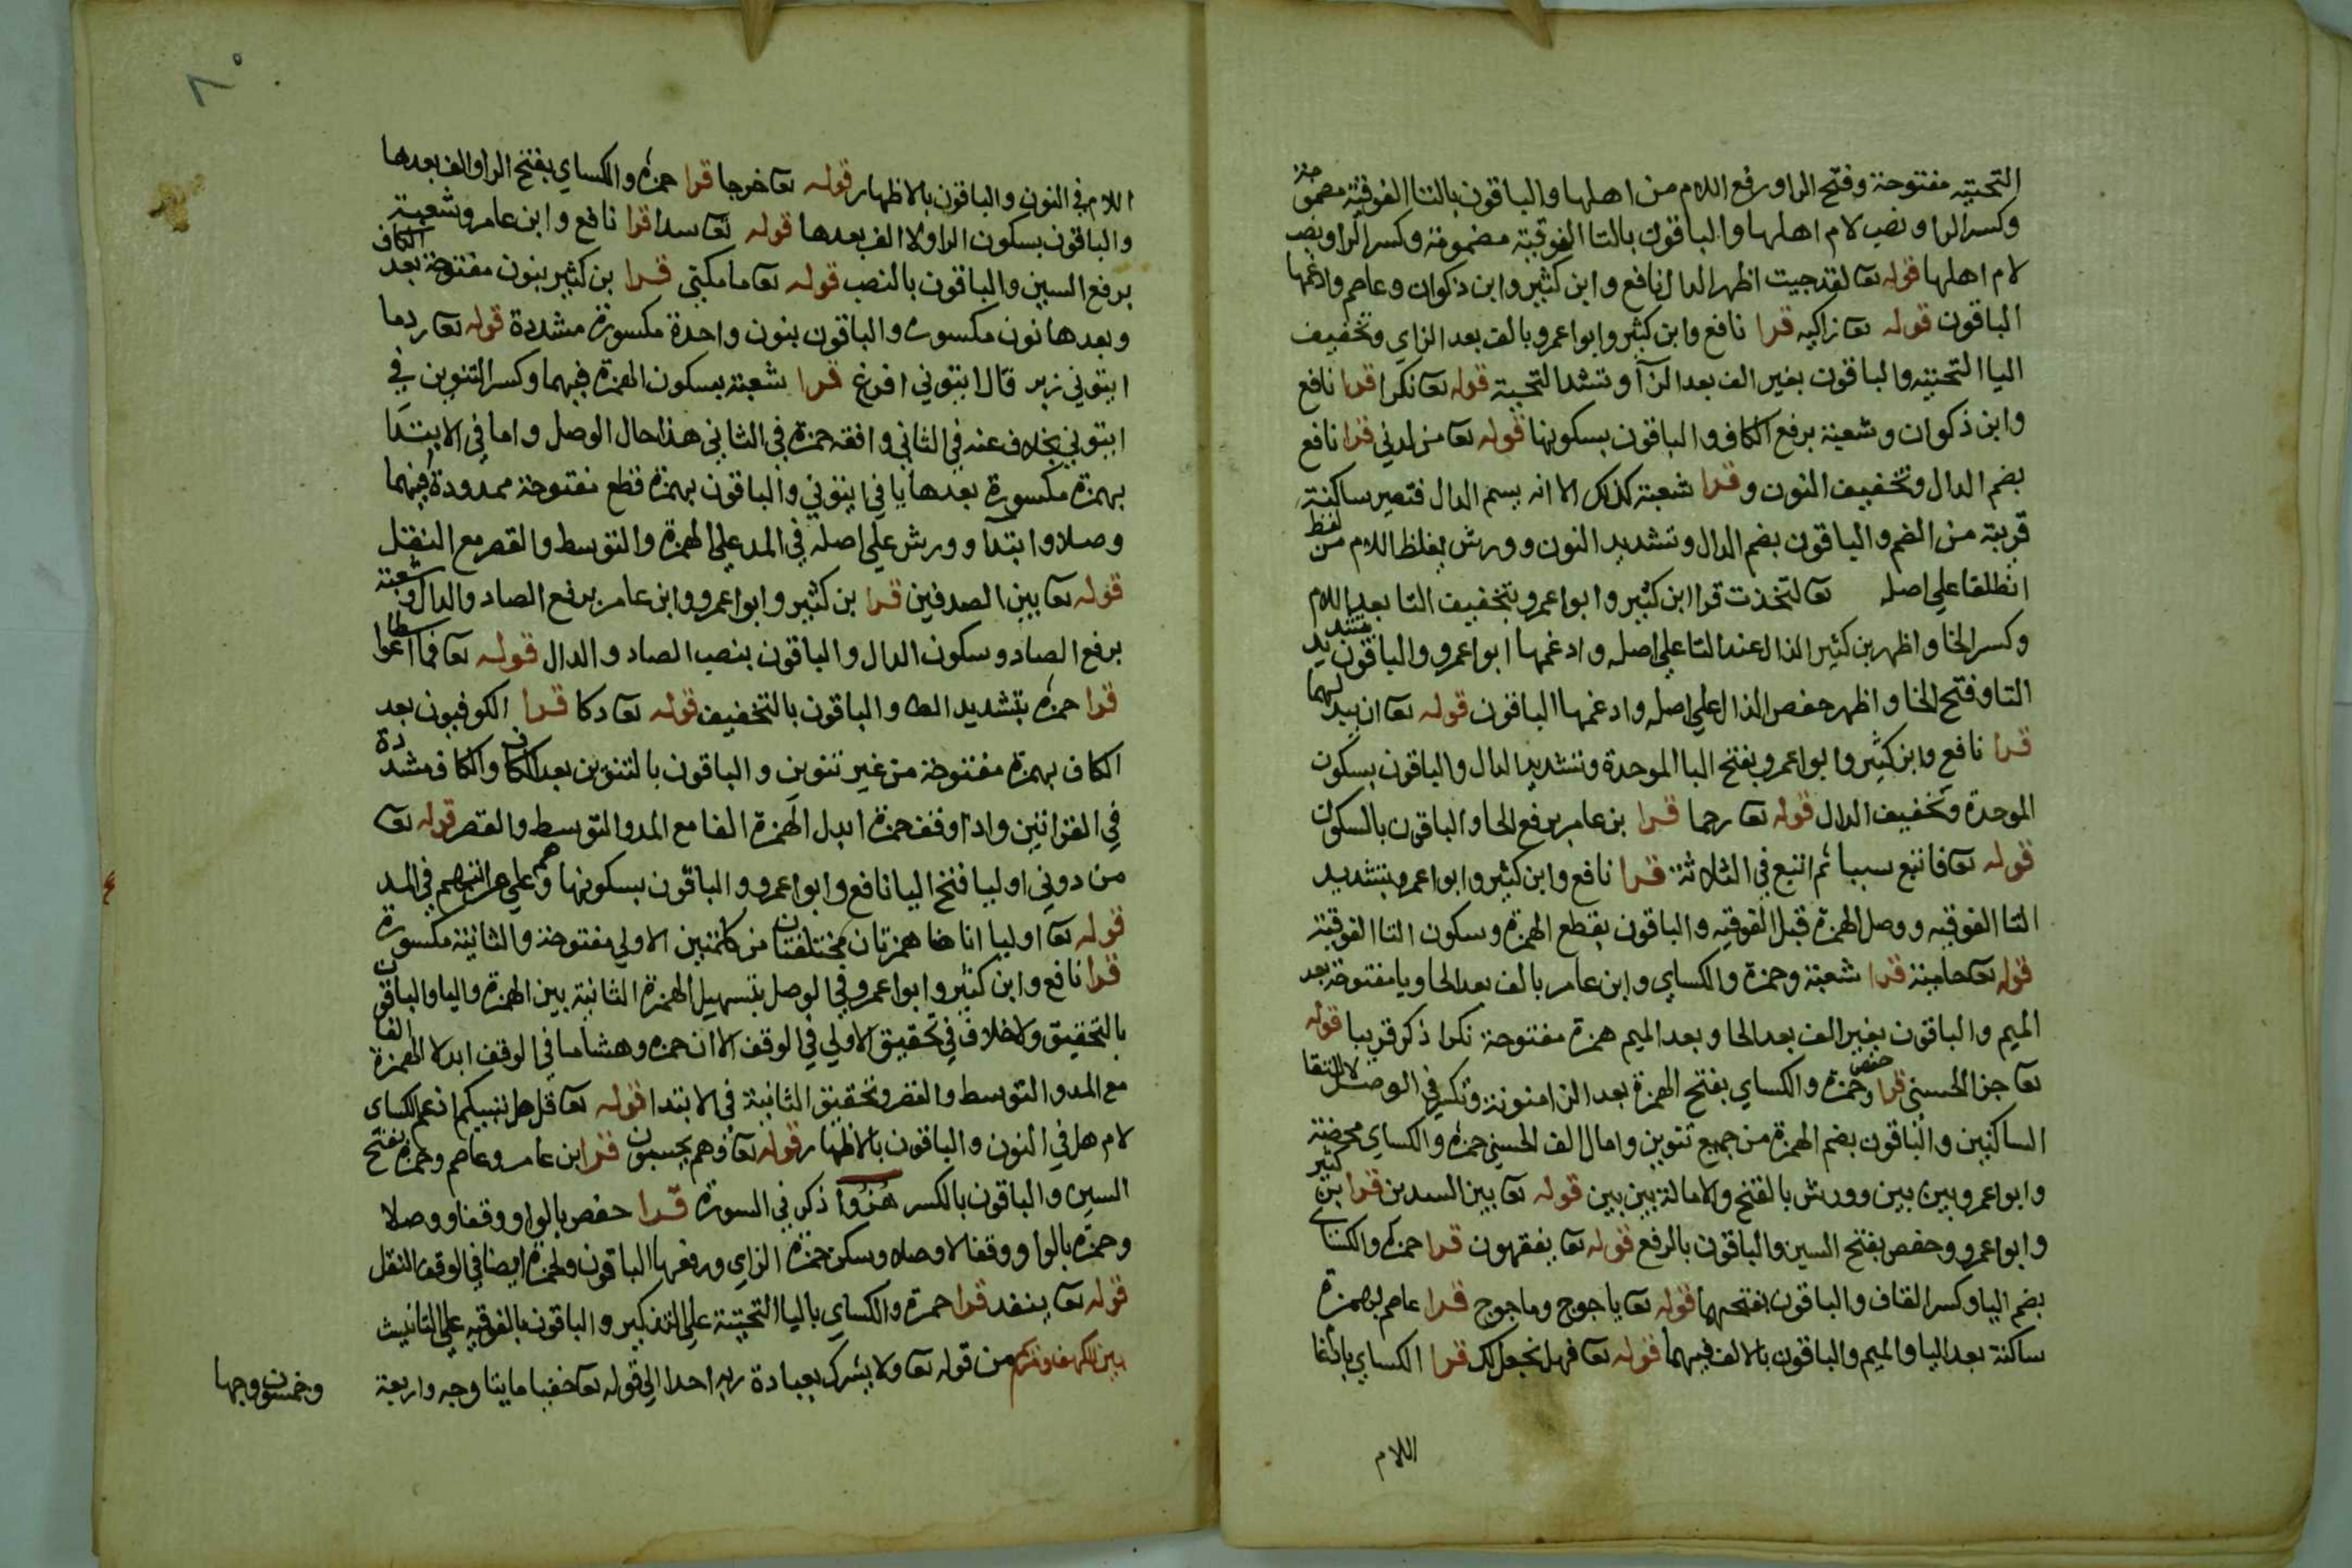 التحتيه مفتوحة وفتح الرا ورفع اللام من اهلها والباقون بالتا الفوقية مضمومة
وكسر الرا ونصب لام اهلها والباقون بالتا الفوقية مضمومة وكسر الرا ونصب
لام اهلها قوله تعا لقد جيت اظهر الدال نافع وابن كثير وابن ذكوان وعاصم وادغمها
الباقون قوله تعا زاكيه قرا نافع وابن كثير وابوا عمرو بالف بعد الزاي وتخفيف
اليا التحتيه والباقون بغير الف بعد الزا وتشد التحتية قوله تعا نكرا قرا نافع
وابن ذكوان وشعبة برفع الكاف والباقون بسكونها قوله تعا من لدني قرا نافع
بضم الدال وتخفيف النون وقرا شعبة كذلك الا انه يسم الدال فتصير ساكنة
قريبة من الضم والباقون بضم الدال وتشديد النون وورش يغلظ اللام من لفظ
انطلقا علي اصله تعا لتخذت قرا ابن كثير وابوا عمرو بتخفيف التا بعد اللام
وكسر الخا واظهر بن كثير الذال عند التا علي اصله وادغمها ابوا عمرو والباقون بتشديد
التا وفتح الخا واظهر حفص الذال علي اصله وادغمها الباقون قوله تعا ان يبدلهما
قرا نافع وابن كثير وابوا عمرو بفتح البا الموحدة وتشديد الدال والباقون بسكون
الموحدة وتخفيف الدال قوله تعا رحما قرا بن عامر برفع الحا والباقون بالسكون
قوله تعا فاتبع سببا ثم اتبع في الثلاثة قرا نافع وابن كثير وابوا عمرو بتشديد
التا الفوقيه ووصل الهمزة قبل الفوقيه والباقون بقطع الهمزة وسكون التا الفوقية
قوله تعا حامية قرا شعبة وحمزة والكساي وابن عامر بالف بعد الحا ويا مفتوحة بعد
الميم والباقون بغير الف بعد الحا وبعد الميم همزة مفتوحة نكرا ذكر قريبا قوله
تعا جزا الحسني قرا حفص وحمزة والكساي بفتح الهمزة بعد الزا منونة وتكسر في الوصل لالتقا
الساكنين والباقون بضم الهمزة من جميع تنوين وامال الف الحسني حمزه والكساي محضة
وابوا عمرو بين بين وورش بالفتح والامالة بين بين قوله تعا بين السدين قرا بن كثير
وابوا عمرو وحفص بفتح السين والباقون بالرفع قوله تعا يفقهون قرا حمزه والكساي
بضم اليا وكسر القاف والباقون بفتحهما قوله تعا ياجوج وماجوج قرا عاصم بهمزة
ساكنة بعد اليا والميم والباقون بالالف فيهما قوله تعا فهل نجعل لك قرا الكساي بادغا
اللام
٨٠
اللام في النون والباقون بالاظهار قوله تعا خرجا قرا حمزه والكساي بفتح الرا والف بعدها
والباقون بسكون الرا ولا الف بعدها قوله تعا سدا قرا نافع وابن عامر وشعبة
برفع السين والباقون بالنصب قوله تعا ما مكني قرا بن كثير بنون مفتوحة بعد الكاف
وبعدها نون مكسوره والباقون بنون واحدة مكسورة مشددة قوله تعا ردما
ايتوني زبر قال ايتوني افرغ قرا شعبة بسكون الهمزة فيهما وكسر التنوين في
ايتوني بخلاف عنه في الثاني وافقه حمزة في الثاني هذا حال الوصل واما في الابتدا
بهمزة مكسورة بعدها يا في ايتوني والباقون بهمزة قطع مفتوحة ممدودة فيهما
وصلا وابتدا وورش علي اصله في المد علي الهمزة والتوسط والقصر مع النقل
قوله تعا بين الصدفين قرا بن كثير وابوا عمرو وابن عامر برفع الصاد والدال وشعبة
برفع الصاد وسكون الدال والباقون بنصب الصاد والدال قوله تعا فما اسطاعوا
قرا حمزه بتشديد الطا والباقون بالتخفيف قوله تعا دكا قرا الكوفيون بعد
الكاف بهمزة مفتوحة من غير تنوين والباقون بالتنوين بعد الكاف والكاف مشددة
في القراتين واذا وقف حمزة ابدل الهمزة الفا مع المد والتوسط والقصر قوله تعا
من دوني اوليا فتح اليا نافع وابوا عمرو والباقون بسكونها وهم علي مراتبهم في المد
قوله تعا اوليا انا هنا همزتان مختلفتان من كلمتين الاولي مفتوحة والثانية مكسورة
قرا نافع وابن كثير وابوا عمرو في الوصل بتسهيل الهمزة الثانية بين الهمزة واليا والباقون
بالتحقيق ولا خلاف في تحقيق الاولي في الوقف الا ان حمزه وهشاما في الوقف ابدلا الهمزة الفا
مع المد والتوسط والقصر وتحقيق الثانية في الابتدا قوله تعا قل هل ننبيكم ادغم الكساي
لام هل في النون والباقون بالاظهار قوله تعا وهم يحسبون قرا ابن عامر وعاصم وحمزة بفتح
السين والباقون بالكسر هزوا ذكر في السورة قرا حفص بالواو وقفا ووصلا
وحمزه بالواو وقفا لا وصلا وسكن حمزة الزاي ورفعها الباقون ولحمزة ايضا في الوقف النقل
قوله تعا ينفد قرا حمزة والكساي باليا التحتية علي التذكير والباقون بالفوقيه علي التانيث
بين الكهف ومريم من قوله تعا ولا يشرك بعبادة ربه احدا الي قوله تعا خفيا مايتا وجه واربعة
وخمسون وجها